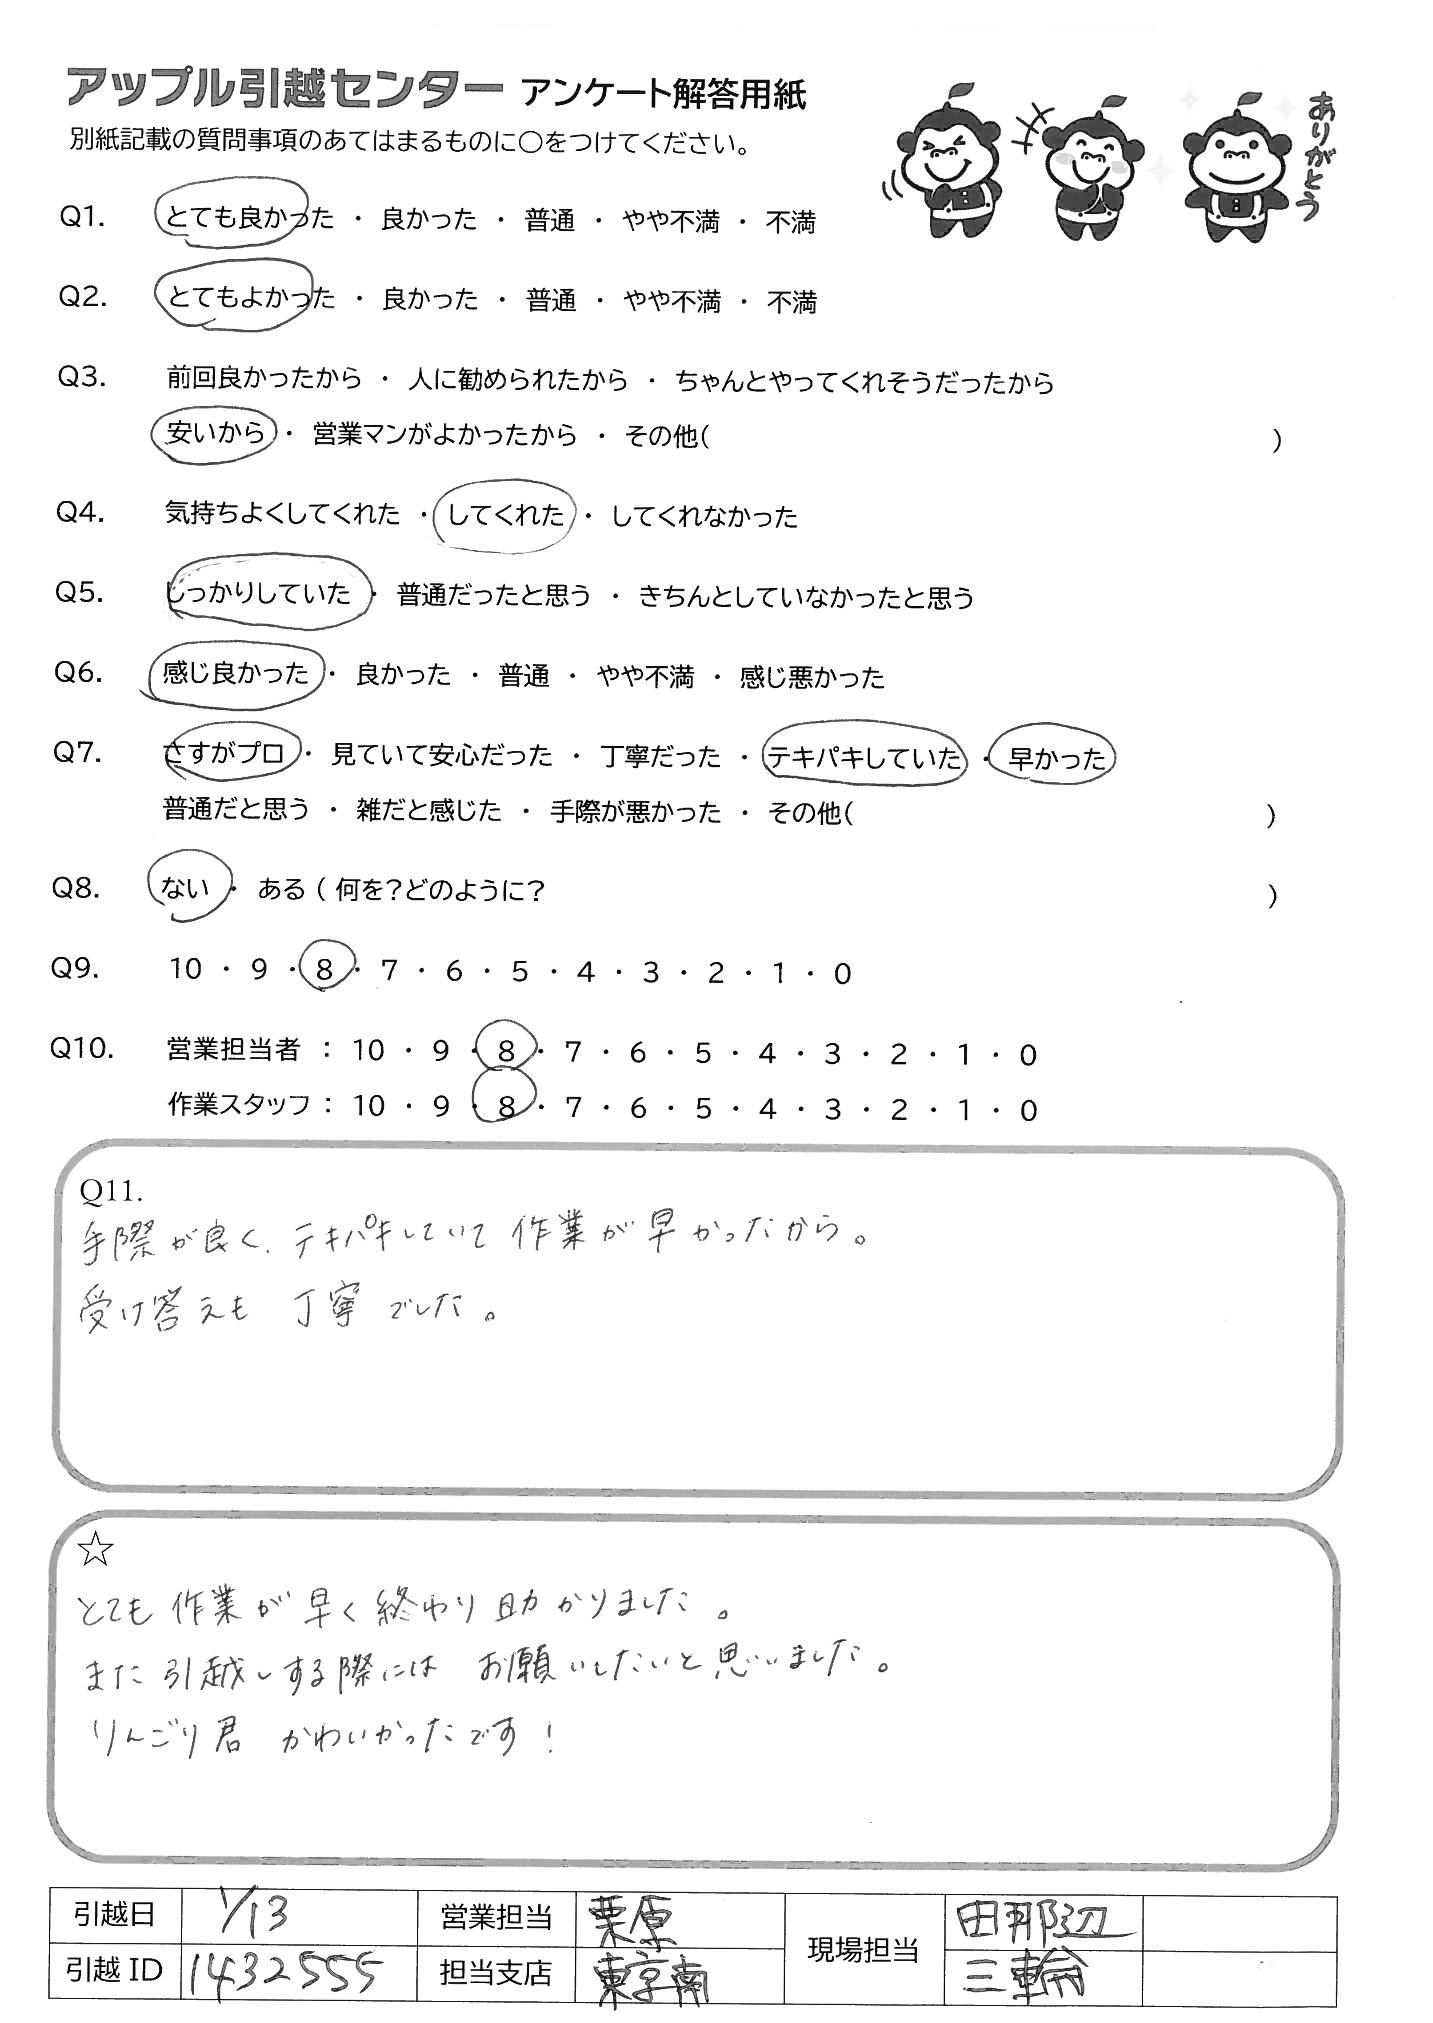 アップル引越センター アンケート解答用紙
別紙記載の質問事項のあてはまるものに○をつけてください。
ありがとう
Q1. とても良かった ・ 良かった ・ 普通 ・ やや不満 ・ 不満
Q2. とてもよかった ・ 良かった ・ 普通 ・ やや不満 ・ 不満
Q3. 前回良かったから ・ 人に勧められたから ・ ちゃんとやってくれそうだったから
安いから ・ 営業マンがよかったから ・ その他( )
Q4. 気持ちよくしてくれた ・ してくれた ・ してくれなかった
Q5. しっかりしていた ・ 普通だったと思う ・ きちんとしていなかったと思う
Q6. 感じ良かった ・ 良かった ・ 普通 ・ やや不満 ・ 感じ悪かった
Q7. さすがプロ ・ 見ていて安心だった ・ 丁寧だった ・ テキパキしていた ・ 早かった
普通だと思う ・ 雑だと感じた ・ 手際が悪かった ・ その他( )
Q8. ない ・ ある ( 何を?どのように? )
Q9. 10 ・ 9 ・ 8 ・ 7 ・ 6 ・ 5 ・ 4 ・ 3 ・ 2 ・ 1 ・ 0
Q10. 営業担当者 : 10 ・ 9 ・ 8 ・ 7 ・ 6 ・ 5 ・ 4 ・ 3 ・ 2 ・ 1 ・ 0
作業スタッフ : 10 ・ 9 ・ 8 ・ 7 ・ 6 ・ 5 ・ 4 ・ 3 ・ 2 ・ 1 ・ 0
Q11.
手際が良く、テキパキしていて作業が早かったから。
受け答えも 丁寧でした。
☆
とても作業が早く終わり助かりました。
また引越しする際には お願いしたいと思いました。
りんごり君 かわいかったです!
引越日 1/13 営業担当 栗原 現場担当 田那辺
引越ID 1432555 担当支店 東京南 三輪